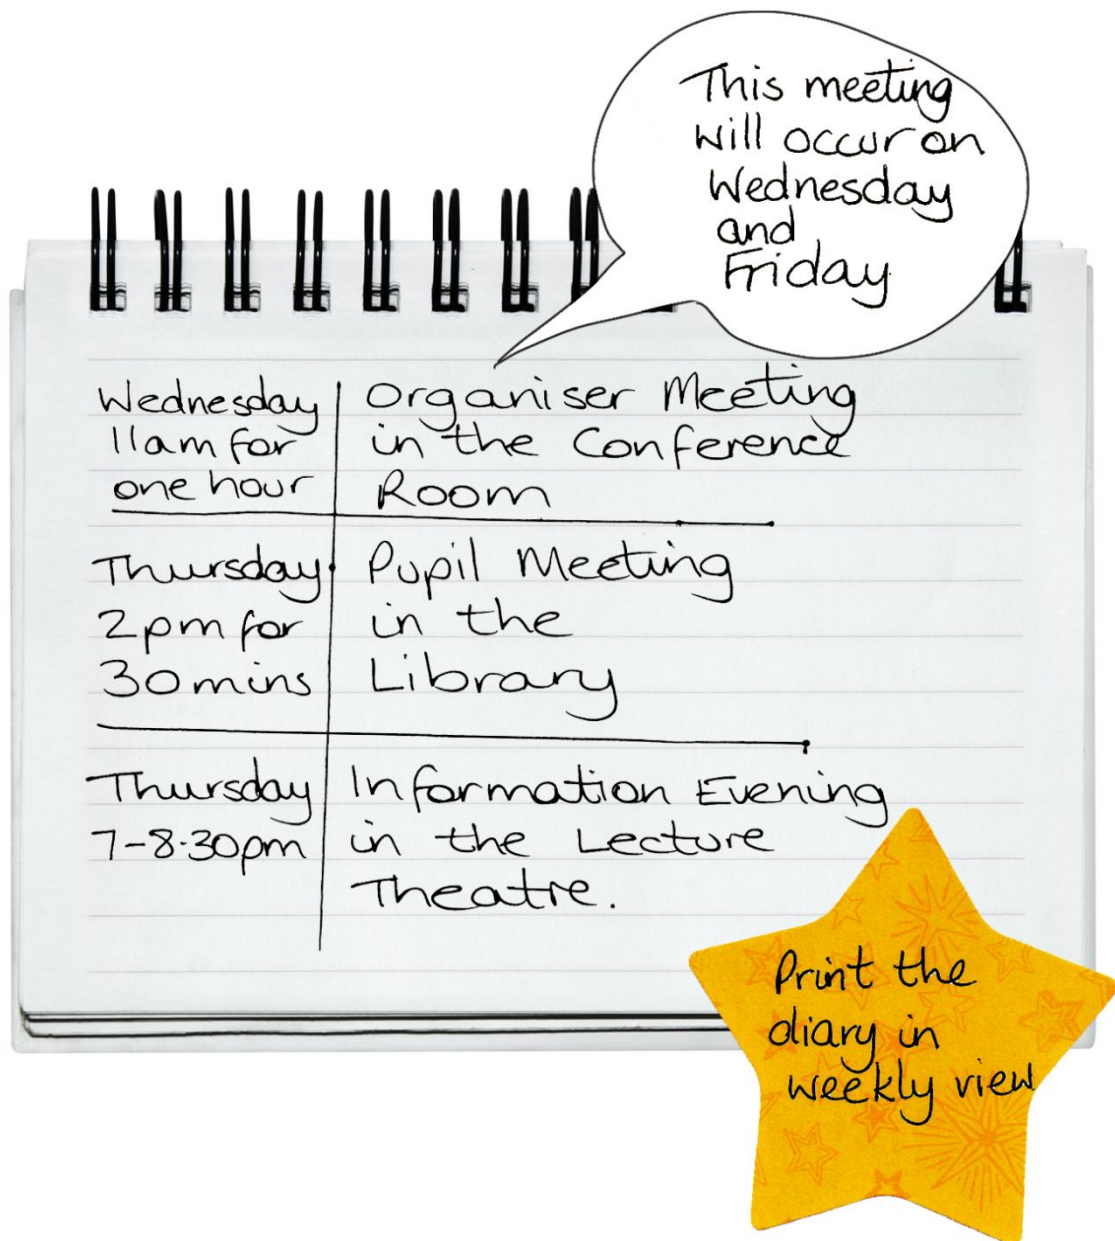 This meeting
will occur on
Wednesday
and
Friday
Wednesday
11am for
one hour
Organiser Meeting
in the Conference
Room
Thursday
2pm for
30 mins
Pupil Meeting
in the
Library
Thursday
7-8.30pm
Information Evening
in the Lecture
Theatre.
Print the
diary in
weekly view